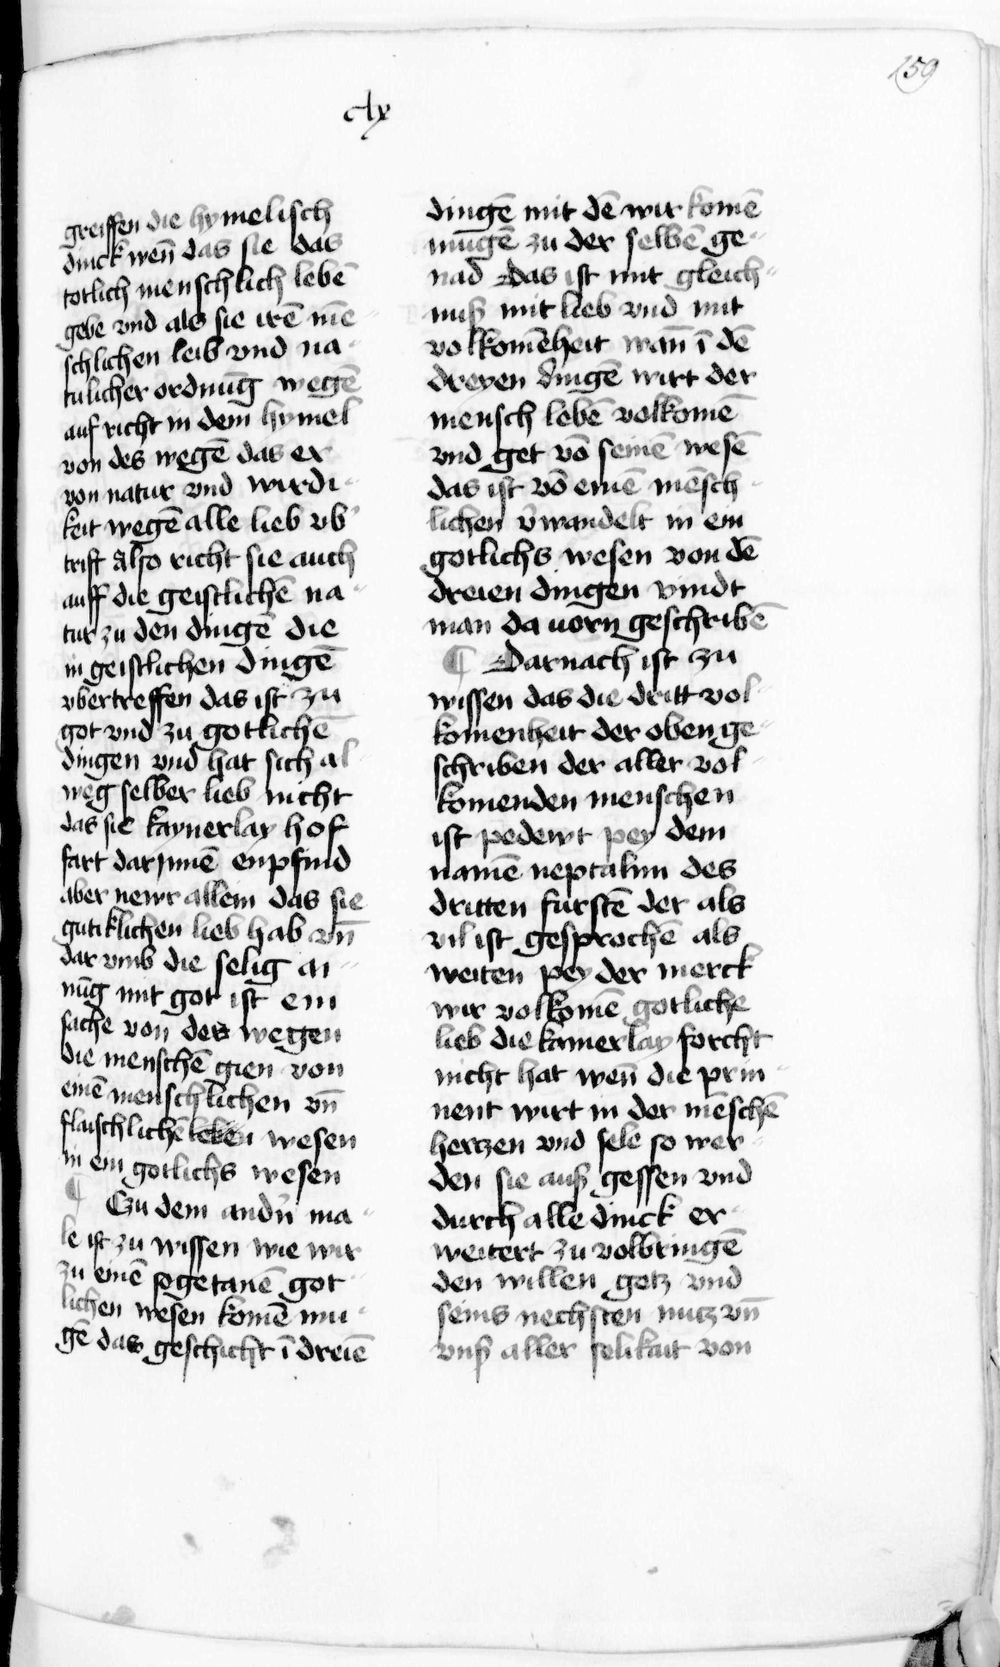 159
clx
greiffen die hymelisch
dinck wen̄ das sie das
totlich menschlich lebē
gebe vnd als sie irē mē
schlichen leib vnd na
tulicher ordnūg wegē
auf richt in dem hymel
von des wegē das er
von natur vnd wirdi
keit wegē alle lieb vb'
trift also richt sie auch
auff die geistlichē na
tur zu den dingē die
in geistlichen dingē
vbertreffen das ist zu
got vnd zu gotlichē
dingen vnd hat sich al
weg selber lieb nicht
das sie kaynerlay hof
fart darjnnē enpfind
aber newr allein das sie
gutiklichen lieb hab vn̄
dar vmb die selig ai
nūg mit got ist ein
sache von des wegen
die menschē gien von
einē menschlichen vn̄
flaischlichē wesen
in ein gotlichs wesen
¶ Czu dem andn̄ ma
le ist zu wissen wie wir
zu einē sogetanē got
lichen wesen komē mu
gē das geschicht ī dreiē
dingē mit dē wir komē
mugē zu der selbē ge
nad Das ist mit gleich
nuß mit lieb vnd mit
volkomēheit wan̄ ī dē
dreyen dingē wirt der
mensch lebē volkomē
vnd get vō seinē wesē
das ist vō einē mēsch
lichen v̄wandelt in ein
gotlichs wesen von dē
dreien dingen vindt
man da uorn geschribē
¶ Darnach ist zu
wissen das die dritt vol
komenheit der oben ge
schriben der aller vol
komenden menschen
ist pedewt pey dem
namē neptalim des
dritten furstē der als
vil ist gesprochē als
weiten pey der merck
wir volkomē gotliche
lieb die kainerlay forcht
nicht hat wen̄ die prin
nent wirt in der mēschē
herczen vnd sele so wer
den sie auß gessen vnd
durch alle dinck er
weitert zu volbringē
den willen gotz vnd
seins nechsten nutz vn̄
vnß aller selikait von